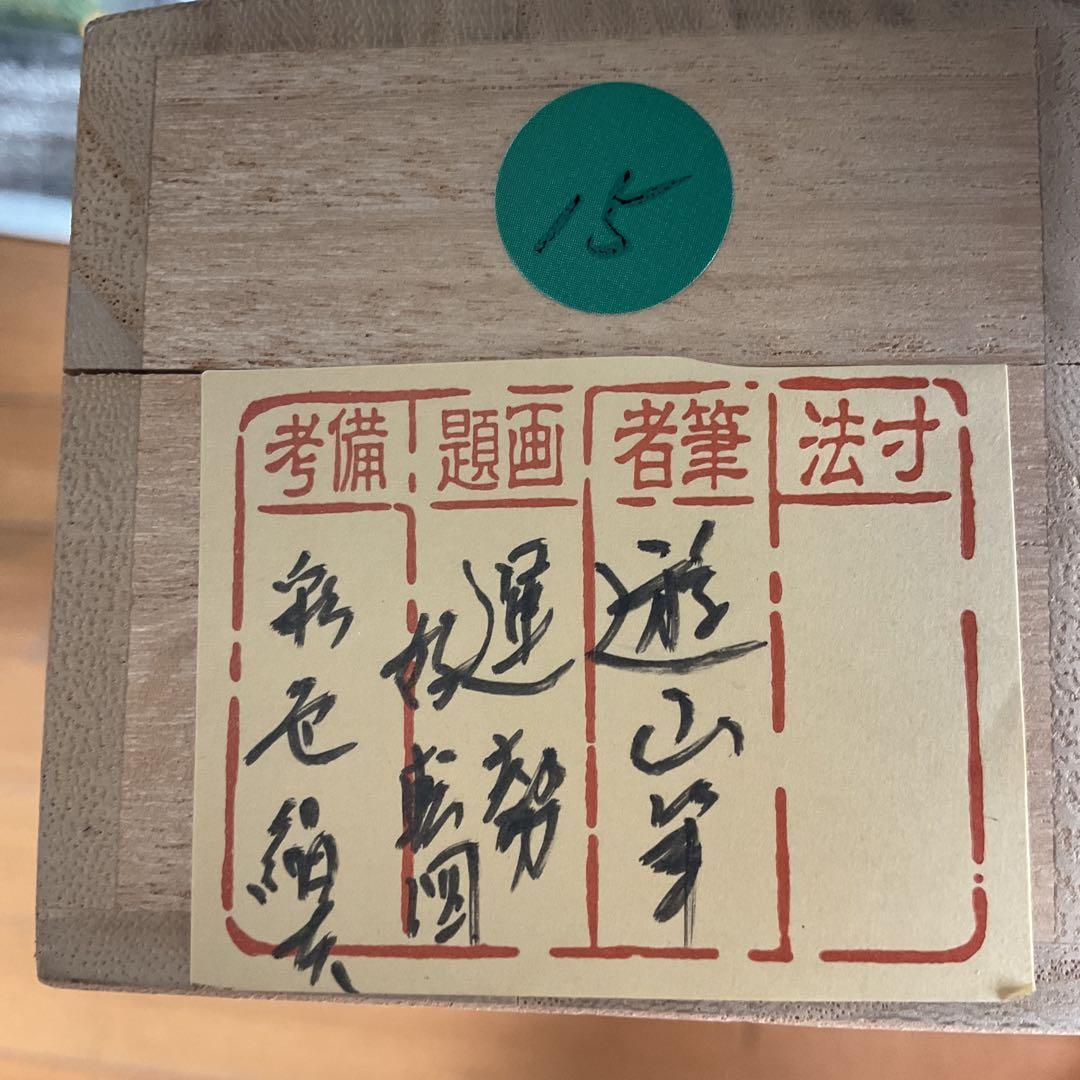 15
寸法
筆者
遊山筆
画題
運勢
盛図
備考
彩色絹本